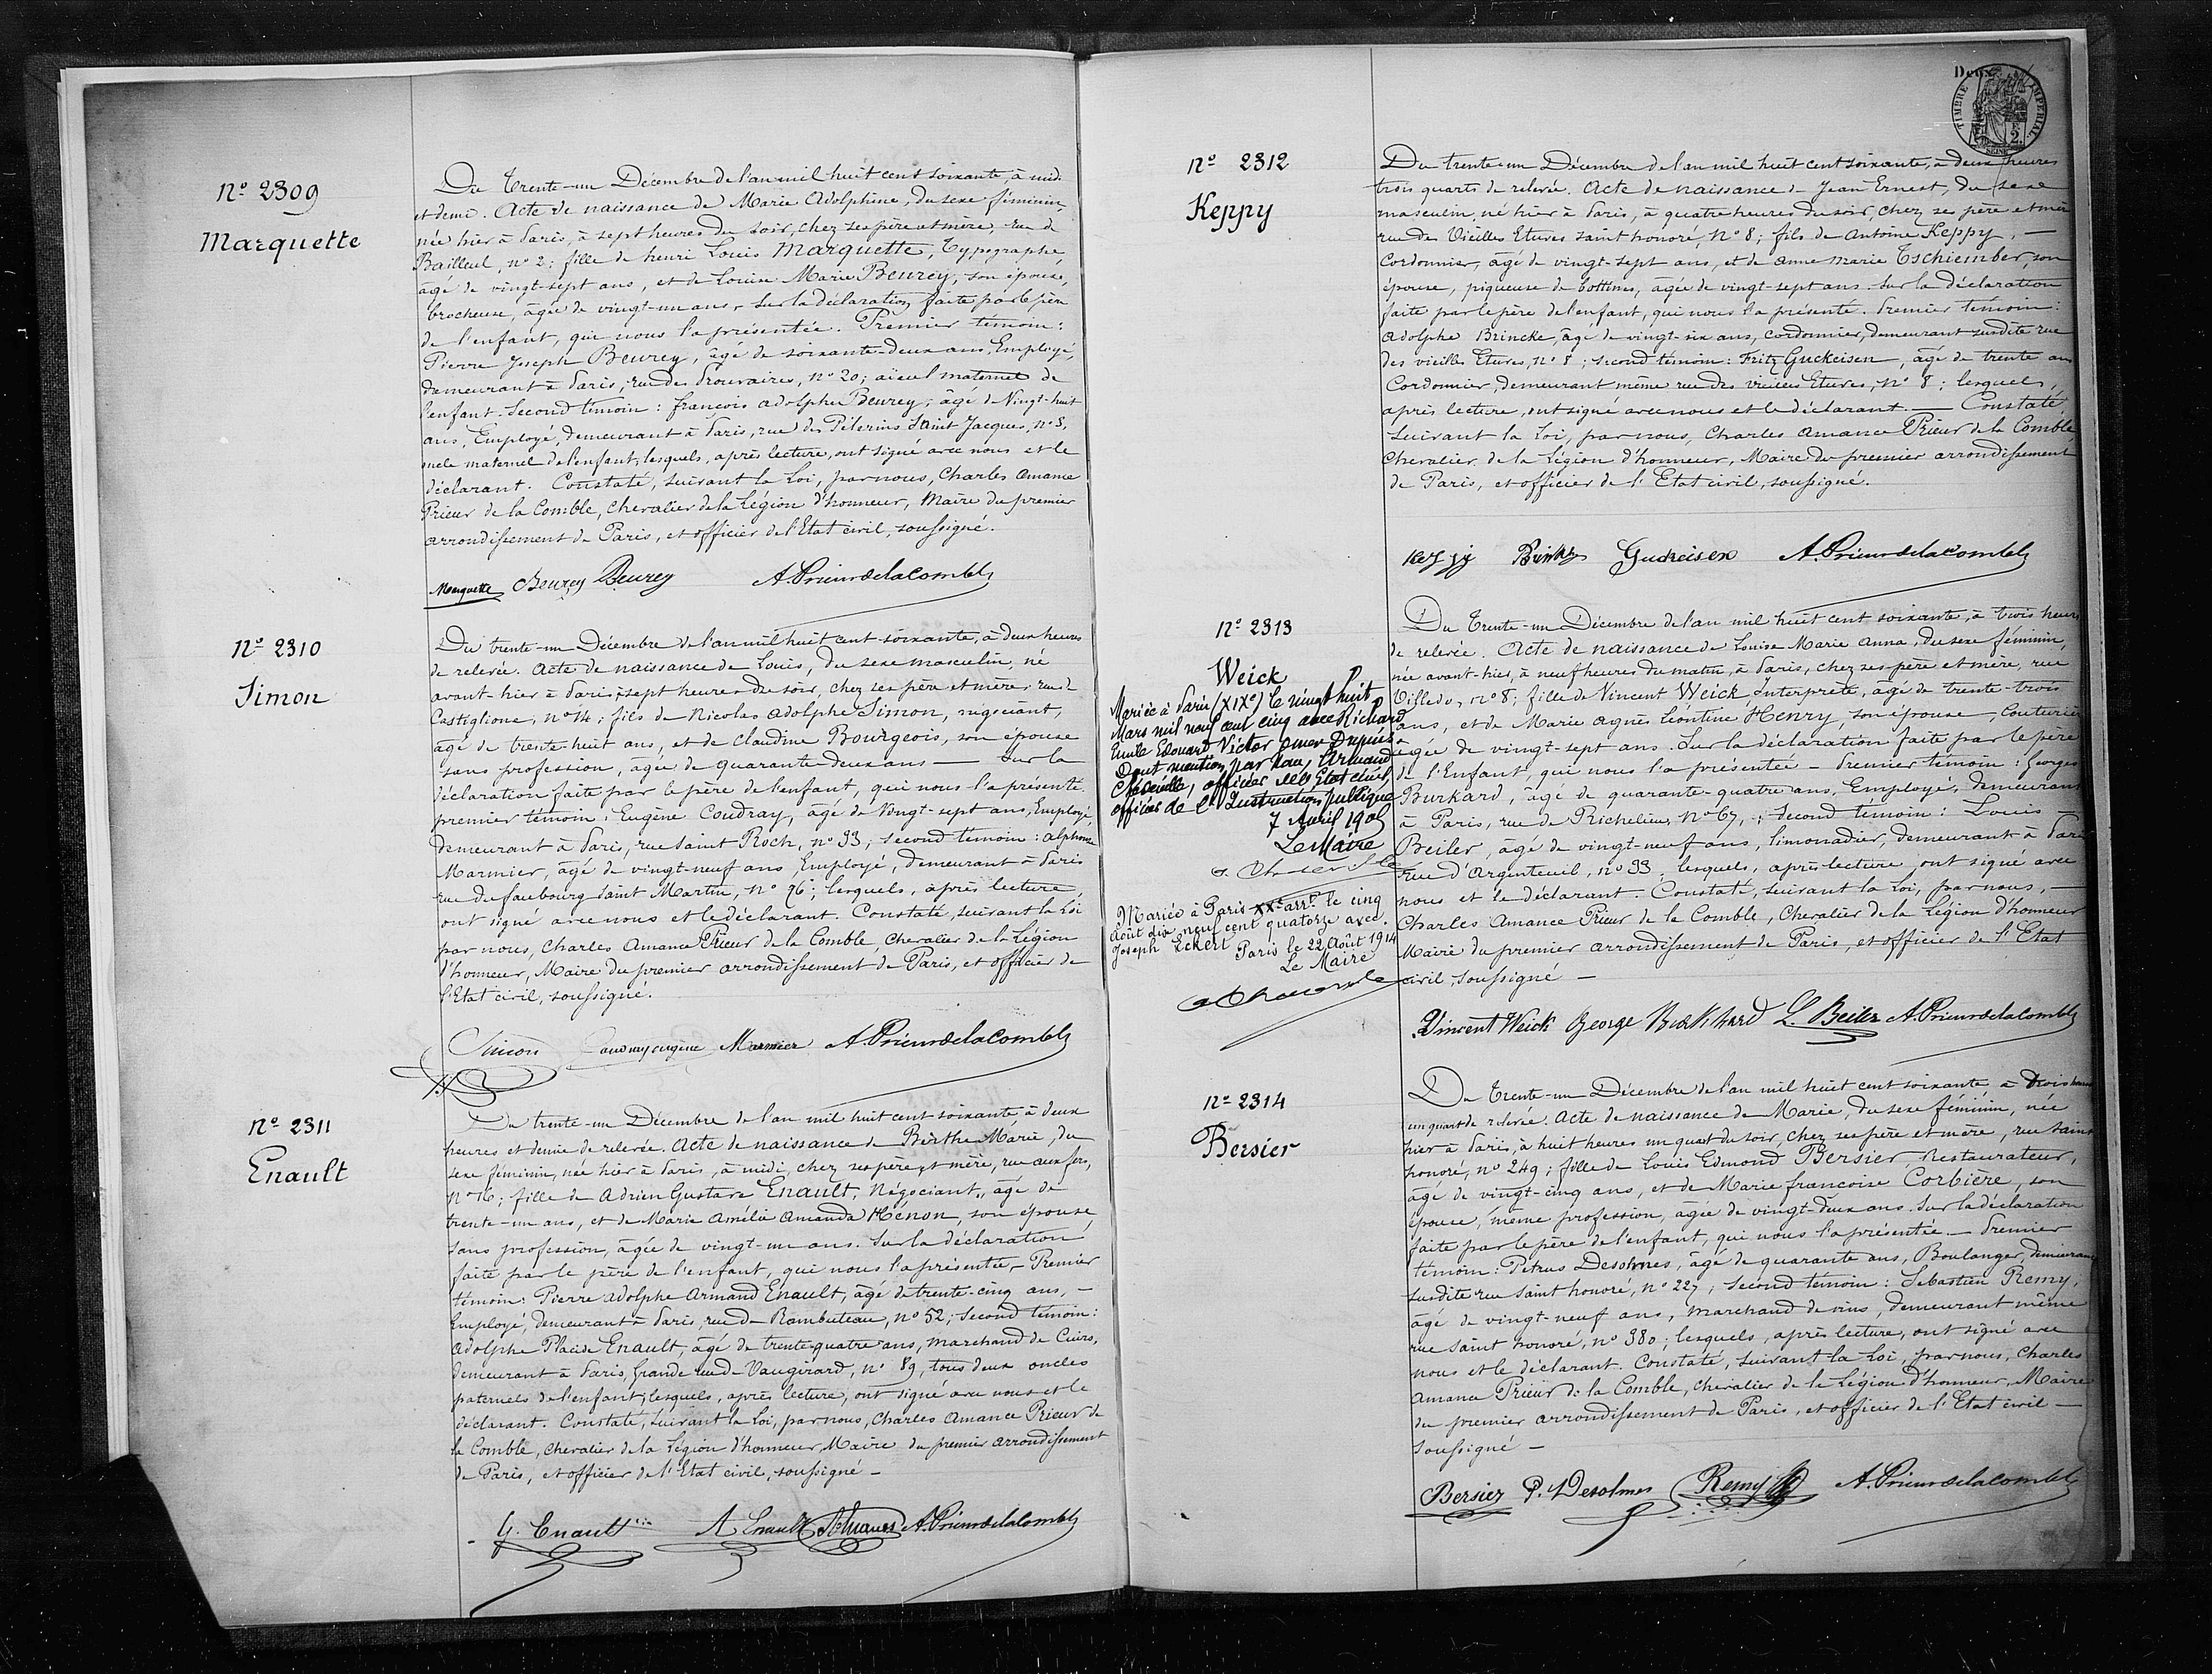 Nº 2309
Marquette
Du Trente-un Décembre de l'an mil huit cent soixante à midi
et demi. Acte de naissance de Marie Adolphine, du sexe féminin,
née hier à Paris, à sept heures du soir, chez ses père et mère, rue de
Bailleul, nº 2; fille de henri Louis Marquette, Typographe,
âgé de vingt-sept ans, et de Louise Marie Beurey, son épouse,
brocheuse, âgée de vingt-un ans, Sur la déclaration faite par le père
de l'enfant, qui nous l'a présentée. Premier témoin:
Pierre Joseph Beurey, âgé de soixante-deux ans, Employé,
demeurant à Paris, rue des Prouvaires, nº 20; aïeul maternel de
l'enfant. Second témoin: françois adolphe Beurey, âgé de Vingt-huit
ans, Employé, demeurant à Paris, rue des Pélerins Saint Jacques, nº 5,
oncle maternel de l'enfant; lesquels, après lecture, ont signé avec nous et le
déclarant. Constaté, suivant la Loi, par nous, Charles Amance
Prieur de la Comble, Chevalier de la Légion d'honneur, Maire du premier
arrondissement de Paris, et officier de l'Etat civil, soussigné.
Marquette Beurey Beurey A. Prieur de la Comble
Nº 2310
Simon
Du trente-un Décembre de l'an mil huit cent soixante, à deux heures
de relevée. Acte de naissance de Louis, du sexe masculin, né
avant-hier à Paris à sept heures du soir, chez ses père et mère, rue de
Castiglione, nº 14; fils de Nicolas adolphe Simon, négociant,
âgé de trente-huit ans, et de Claudine Bourgeois, son épouse
sans profession, âgée de quarante deux ans — Sur la
déclaration faite par le père de l'enfant, qui nous l'a présenté.
premier témoin: Eugène Coudray, âgé de Vingt-sept ans, Employé,
demeurant à Paris, rue Saint Roch, nº 33; second témoin: alphonse
Marmier, âgé de vingt-neuf ans, Employé, demeurant à Paris
rue du faubourg Saint Martin, nº 96; lesquels, après lecture,
ont signé avec nous et le déclarant. Constaté, suivant la Loi
par nous, Charles Amance Prieur de la Comble, Chevalier de la Légion
d'honneur, Maire du premier arrondissement de Paris, et officier de
l'Etat civil, soussigné.
Simon Coudray eugène Marmier A. Prieur de la Comble
Nº 2311
Enault
Du trente-un Décembre de l'an mil huit cent soixante à deux
heures et demie de relevée. Acte de naissance de Berthe Marie, du
sexe féminin, née hier à Paris, à midi, chez ses père et mère, rue aux fers,
nº 16; fille de Adrien Gustave Enault, Négociant, âgé de
trente-un ans, et de Marie Amélie Amanda Hénon, son épouse
sans profession, âgée de vingt-un ans. Sur la déclaration
faite par le père de l'enfant, qui nous l'a présentée — Premier
témoin: Pierre Adolphe Armand Enault, âgé de trente-cinq ans, —
Employé, demeurant à Paris, rue de Rambuteau, nº 52; Second témoin:
Adolphe Placide Enault, âgé de trente-quatre ans, marchand de Cuirs,
demeurant à Paris, Grande rue de Vaugirard, nº 89, tous deux oncles
paternels de l'enfant; lesquels, après lecture, ont signé avec nous et le
déclarant. Constaté, suivant la Loi, par nous, Charles Amance Prieur de
la Comble, Chevalier de la Légion d'honneur, Maire du premier arrondissement
de Paris, et officier de l'Etat civil, soussigné —
G. Enault A Enault A. Prieur de la Comble
Deux
TIMBRE IMPERIAL
SEINE
Nº 2312
Keppy
Du trente-un Décembre de l'an mil huit cent soixante, à deux heures
trois quarts de relevée. Acte de naissance de Jean Ernest, du sexe
masculin, né hier à Paris, à quatre heures du soir, chez ses père et mère
rue des Vieilles Etuves Saint honoré, Nº 8; fils de Antoine Keppy, —
Cordonnier, âgé de vingt-sept ans, et de anne marie Tschiember, son
épouse, piqueuse de bottines, âgée de vingt-sept ans. Sur la déclaration
faite par le père de l'enfant, qui nous l'a présenté. Premier témoin:
Adolphe Brincke, âgé de vingt-six ans, Cordonnier, demeurant susdite rue
des vieilles Etuves, Nº 8; second témoin: Fritz Guckeisen, âgé de trente ans
Cordonnier, demeurant même rue des vieilles Etuves, Nº 8; lesquels,
après lecture, ont signé avec nous et le déclarant. — Constaté,
suivant la Loi, par nous, Charles Amance Prieur de la Comble
Chevalier de la Légion d'honneur, Maire du premier arrondissement
de Paris, et officier de l'Etat civil, soussigné.
Keppy Brinke Guckeisen A. Prieur de la Comble
Nº 2313
Weick
Mariée à Paris (XIXº) le vingt huit
Mars mil neuf cent cinq avec Richard
Emile Edouard Victor Omer Dupuis
Dont mention par nous, Armand
officier de l'Etat civil,
officier de l'Instruction publique
7 Avril 1905
Le Maire
Mariée à Paris XXº arrt le cinq
Août dix neuf cent quatorze avec
Joseph Eckert Paris le 22 Août 1914
Le Maire
Du Trente-un Décembre de l'an mil huit cent soixante, à trois heures
de relevée. Acte de naissance de Louise Marie Anna, du sexe féminin,
née avant-hier, à neuf heures du matin, à Paris, chez ses père et mère, rue
Villedo, nº 8; fille de Vincent Weick, Interprète, âgé de trente-trois
ans, et de Marie Agnès Léontine Henry, son épouse, Couturière
âgée de vingt-sept ans. Sur la déclaration faite par le père
de l'Enfant, qui nous l'a présentée — Premier témoin: Georges
Burkard, âgé de quarante-quatre ans, Employé, demeurant
à Paris, rue de Richelieu, Nº 67, —; Second témoin: Louis —
Beiler, âgé de vingt-neuf ans, limonadier, demeurant à Paris
rue d'Argenteuil, nº 33, lesquels, après lecture ont signé avec
nous et le déclarant. Constaté, suivant la Loi, par nous, —
Charles Amance Prieur de la Comble, Chevalier de la Légion d'honneur
Maire du premier arrondissement de Paris, et officier de l'Etat
civil, soussigné —
Vincent Weick George Burkhard L. Beiler A. Prieur de la Comble
Nº 2314
Bersier
Du Trente-un Décembre de l'an mil huit cent soixante à trois heures
un quart de relevée. Acte de naissance de Marie, du sexe féminin, née
hier à Paris, à huit heures un quart du soir, chez ses père et mère, rue Saint
honoré, nº 249; fille de Louis Edmond Bersier Restaurateur,
âgé de vingt-cinq ans, et de Marie françoise Corbière, son
épouse, même profession, âgée de vingt-deux ans. Sur la déclaration
faite par le père de l'enfant, qui nous l'a présentée — Premier
témoin: Petrus Desolmes, âgé de quarante ans, Boulanger, demeurant
susdite rue Saint honoré, nº 227; second témoin: Sebastien Remy,
âgé de vingt-neuf ans, Marchand de vins, demeurant même
rue Saint honoré, nº 380; lesquels, après lecture, ont signé avec
nous et le déclarant. Constaté, suivant la Loi, par nous, Charles
Amance Prieur de la Comble, Chevalier de la Légion d'honneur, Maire
du premier arrondissement de Paris, et officier de l'Etat civil —
soussigné —
Bersier P. Desolmes Remy A. Prieur de la Comble